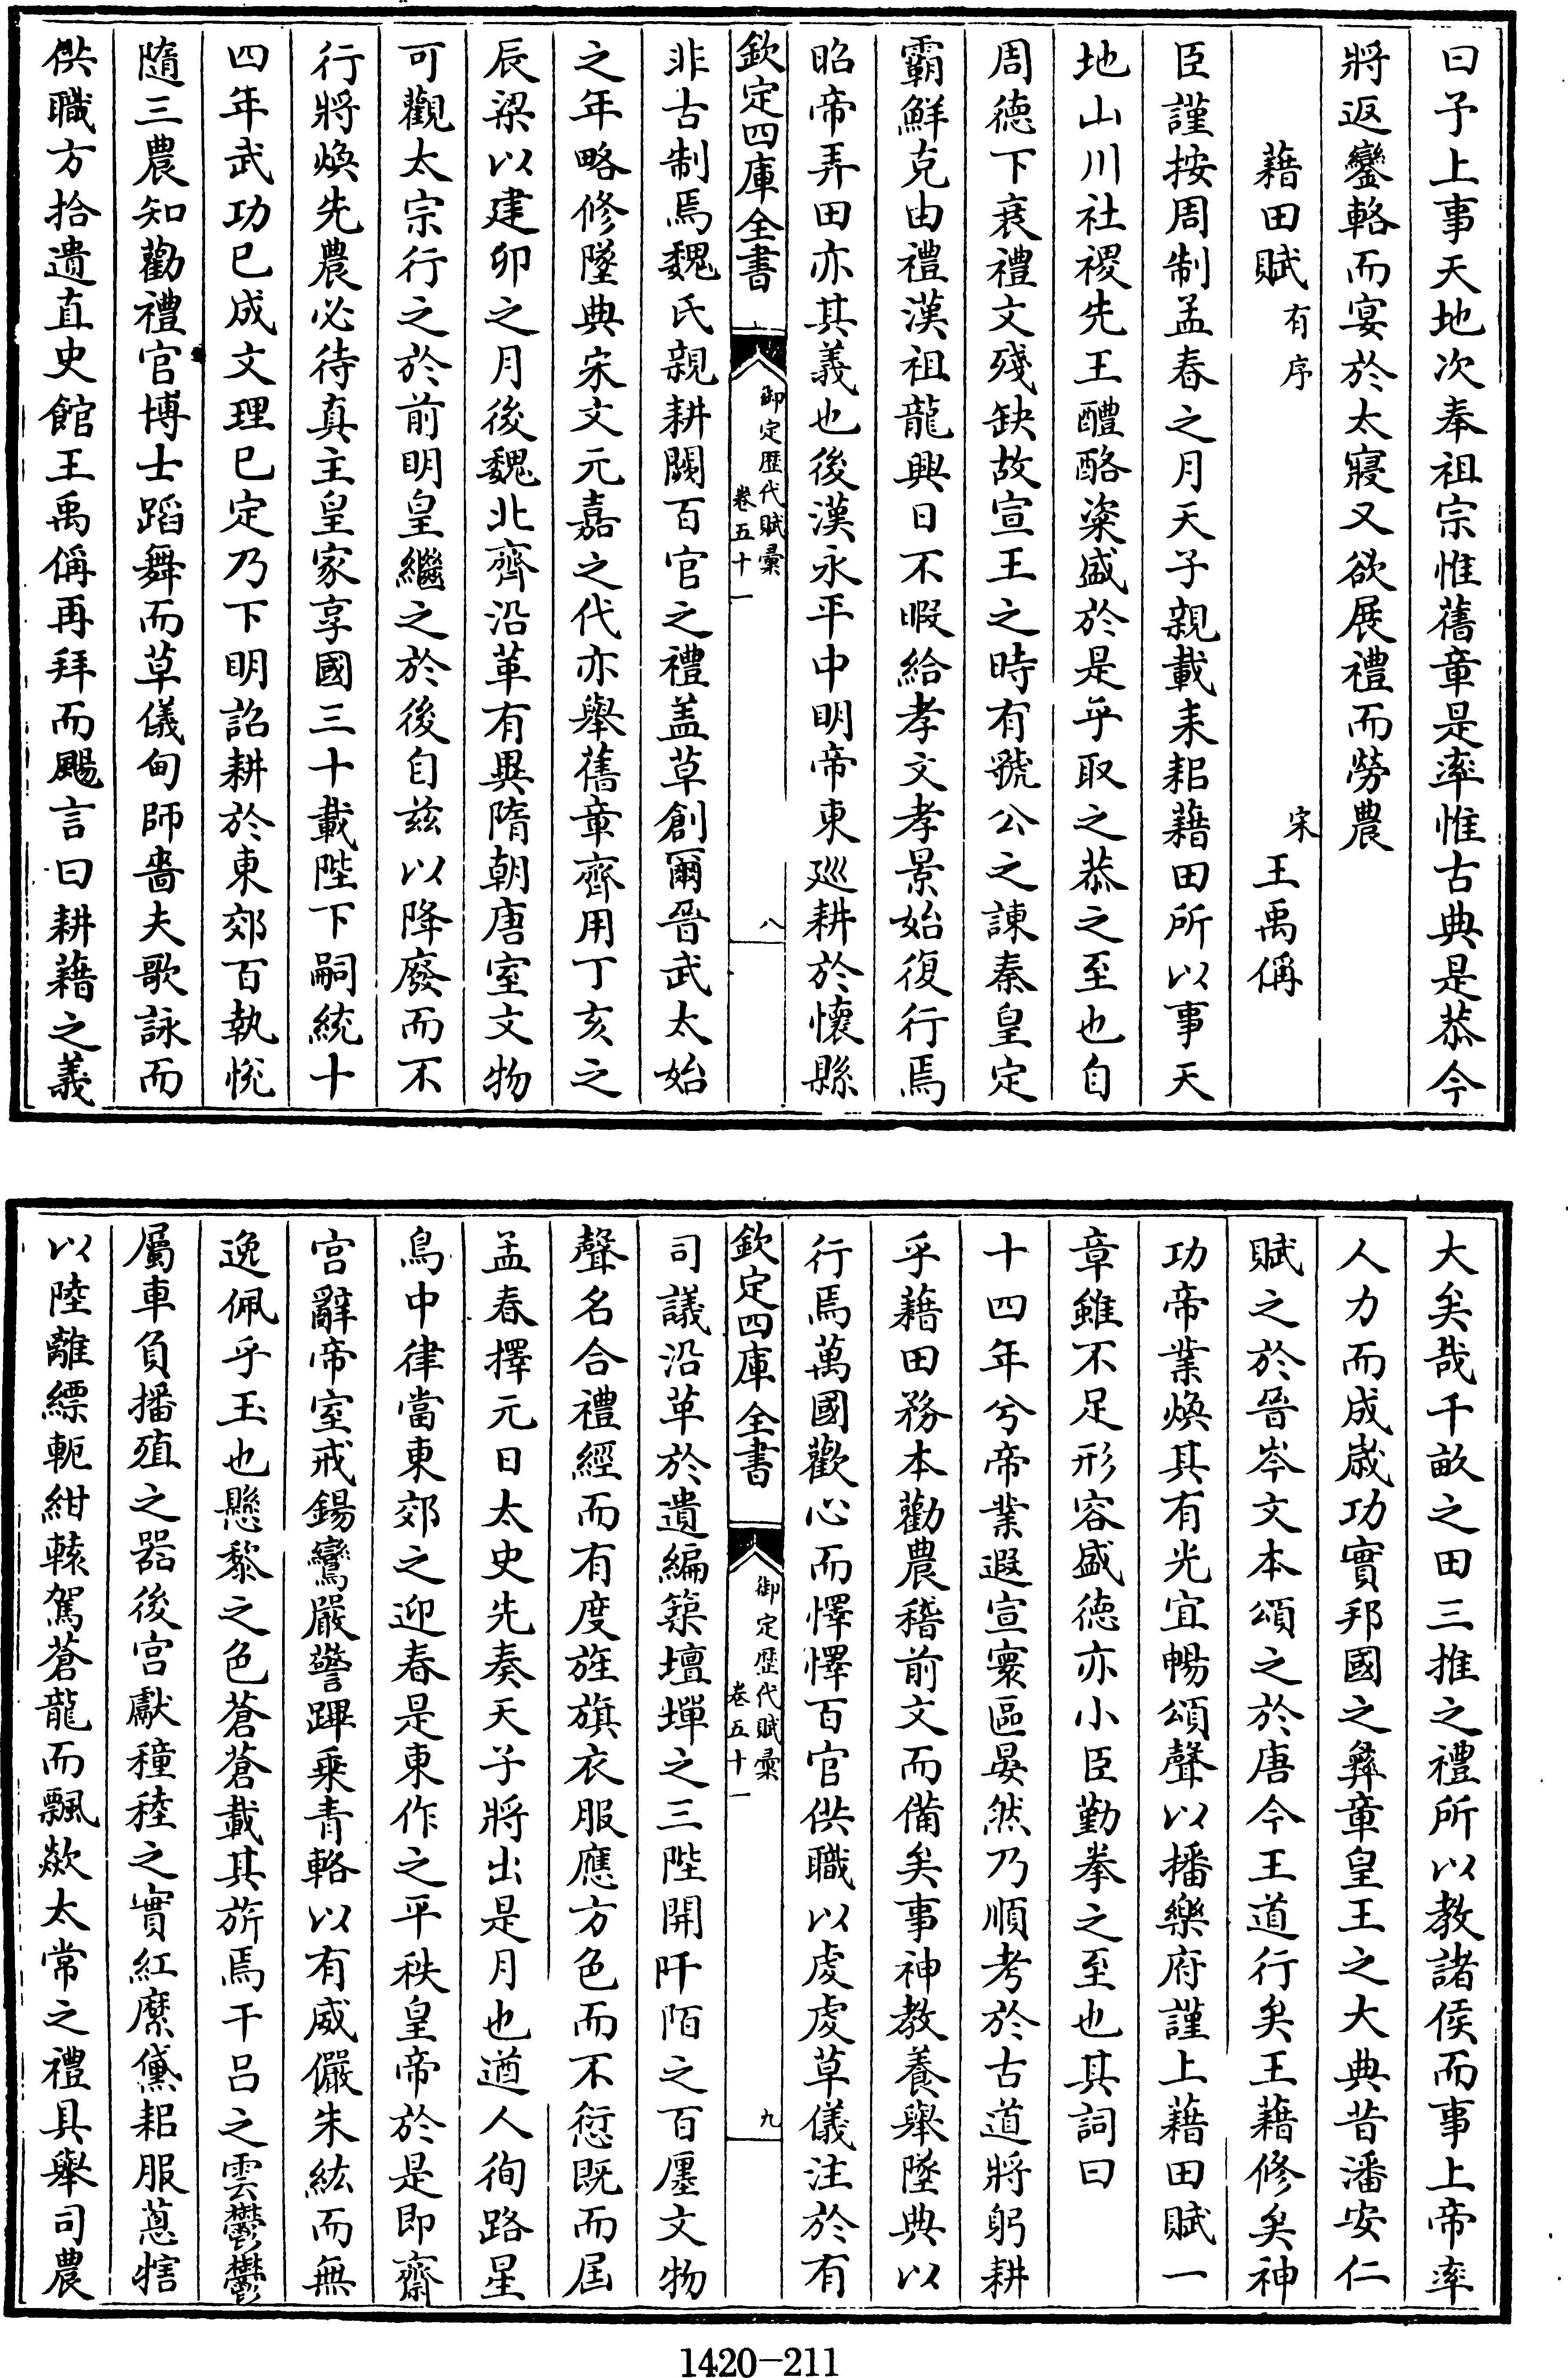 曰予上事天地次奉祖宗惟舊章是率惟古典是恭今
將返鑾輅而宴於太寢又欲展禮而勞農
藉田賦有序 宋王禹偁
臣謹按周制孟春之月天子親載耒耜藉田所以事天
地山川社稷先王醴酪粢盛於是乎取之恭之至也自
周德下衰禮文殘缺故宣王之時有虢公之諫秦皇定
霸鮮克由禮漢祖龍興日不暇給孝文孝景始復行焉
昭帝弄田亦其義也後漢永平中明帝東巡耕於懷縣
欽定四庫全書 御定歷代賦彙 卷五十一 八
非古制焉魏氏親耕闕百官之禮盖草創爾晉武太始
之年略修墜典宋文元嘉之代亦舉舊章齊用丁亥之
辰梁以建卯之月後魏北齊沿革有異隋朝唐室文物
可觀太宗行之於前明皇繼之於後自茲以降廢而不
行將煥先農必待真主皇家享國三十載陛下嗣統十
四年武功已成文理已定乃下明詔耕於東郊百執恱
隨三農知勸禮官博士蹈舞而草儀甸師嗇夫歌詠而
供職方拾遺直史館王禹偁再拜而颺言曰耕藉之義
大矣哉千畝之田三推之禮所以教諸侯而事上帝率
人力而成歲功實邦國之彝章皇王之大典昔潘安仁
賦之於晉岑文本頌之於唐今王道行矣王藉修矣神
功帝業煥其有光宜暢頌聲以播樂府謹上藉田賦一
章雖不足形容盛德亦小臣勤拳之至也其詞曰
十四年兮帝業遐宣寰區晏然乃順考於古道將躬耕
乎藉田務本勸農稽前文而備矣事神教養舉墜典以
行焉萬國歡心而懌懌百官供職以虔虔草儀注於有
欽定四庫全書 御定歷代賦彙 卷五十一 九
司議沿革於遺編築壇墠之三陛開阡陌之百廛文物
聲名合禮經而有度旌旗衣服應方色而不愆既而屆
孟春擇元日太史先奏天子將出是月也遒人徇路星
鳥中律當東郊之迎春是東作之平秩皇帝於是即齋
宫辭帝室戒鍚鸞嚴警蹕乘青輅以有威儼朱紘而無
逸佩乎玉也懸黎之色蒼蒼載其旂焉干呂之雲鬱鬱
屬車負播殖之器後宫獻穜稑之實紅縻黛耜服蔥犗
以陸離縹軛紺轅駕蒼龍而飄歘太常之禮具舉司農
1420-211